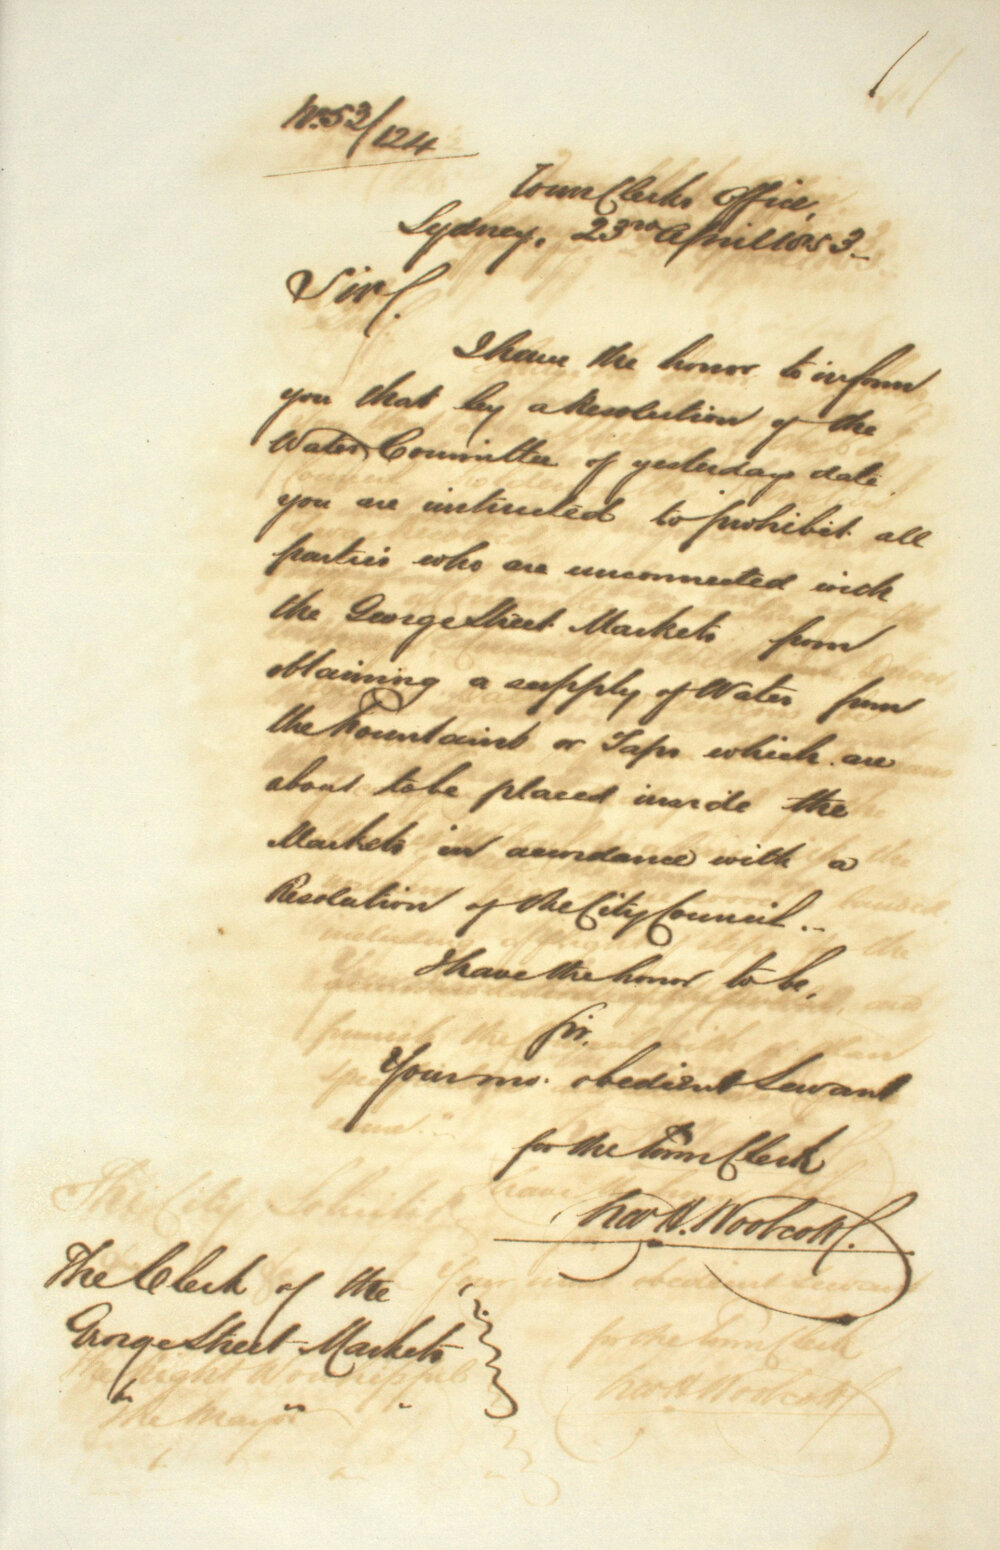 No. 53/124
Town Clerks Office,
Sydney, 23rd April 1853
Sir,
I have the honor to inform
you that by a Resolution of the
Water Committee of yesterday date
you are instructed to prohibit all
parties who are unconnected with
the George Street Markets from
obtaining a supply of Water from
the Fountains or Taps which are
about to be placed inside the
Markets in accordance with a
Resolution of the City Council.
I have the honor to be,
Sir,
Your mo. obedient Servant
for the Town Clerk
Chas H. Woolcott
The Clerk of the
George Street Markets